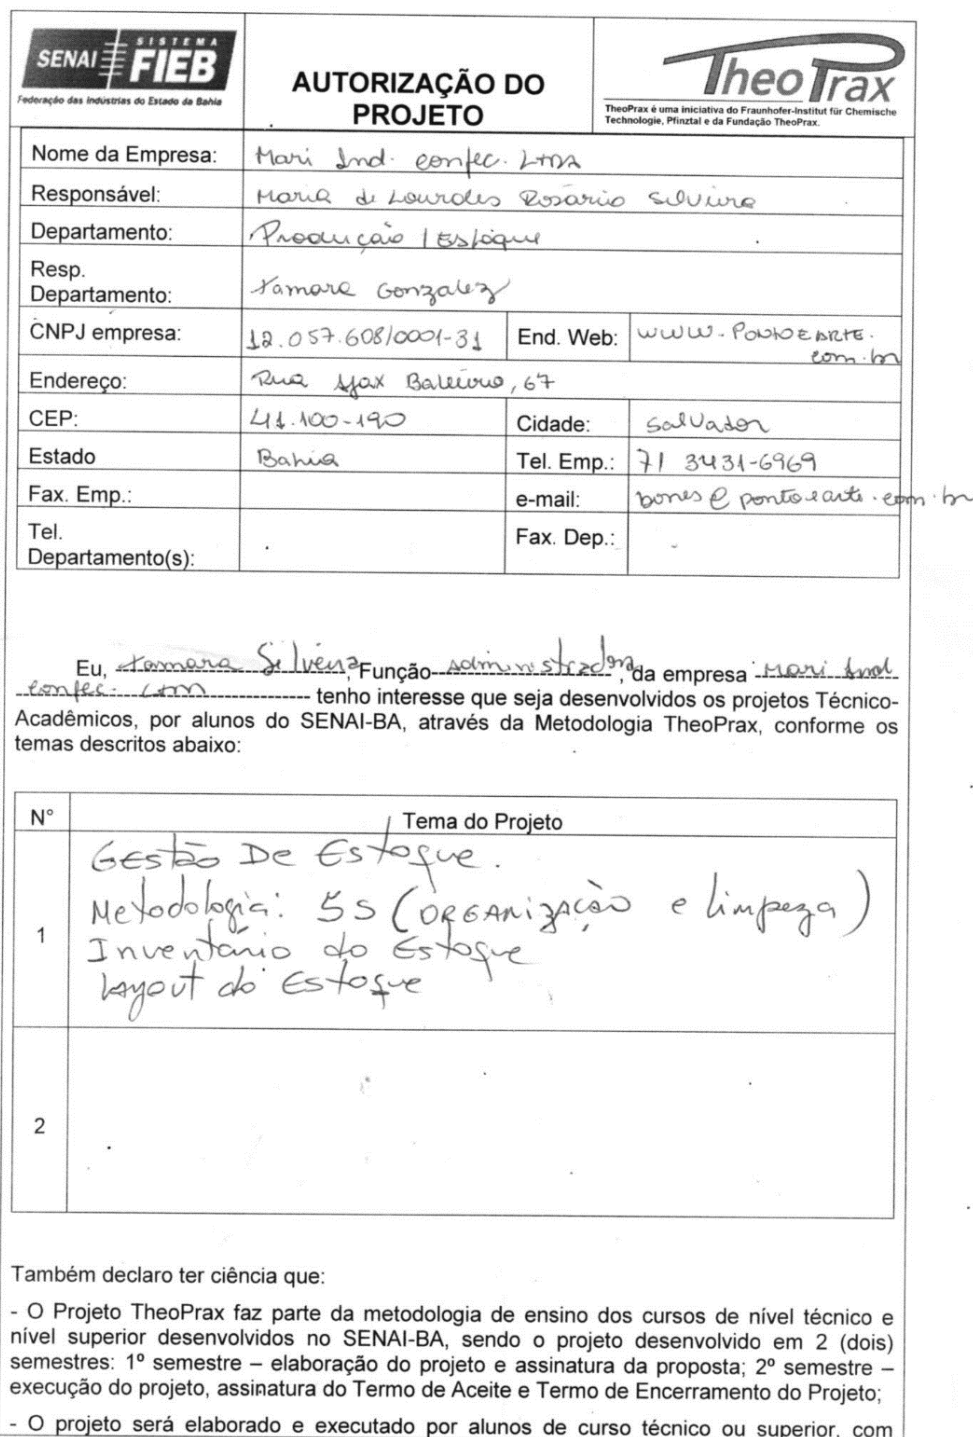 SENAI SISTEMA FIEB
Federação das Indústrias do Estado da Bahia
AUTORIZAÇÃO DO PROJETO
TheoPrax
TheoPrax é uma iniciativa do Fraunhofer-Institut für Chemische
Technologie, Pfinztal e da Fundação TheoPrax.
Nome da Empresa: Mari Ind. confec. LTDA
Responsável: Maria de Lourdes Rosário Silveira
Departamento: Produção / Estoque
Resp. Departamento: Tamara Gonzalez
CNPJ empresa: 12.057.608/0001-31 End. Web: www.PONTOEARTE.com.br
Endereço: Rua Ajax Baleeiro, 67
CEP: 41.100-190 Cidade: Salvador
Estado Bahia Tel. Emp.: 71 3431-6969
Fax. Emp.: e-mail: bones@pontoearte.com.br
Tel. Departamento(s): Fax. Dep.:
Eu, Tamara Silveira, Função Administradora, da empresa Mari Ind
confec. LTDA tenho interesse que seja desenvolvidos os projetos Técnico-
Acadêmicos, por alunos do SENAI-BA, através da Metodologia TheoPrax, conforme os
temas descritos abaixo:
N° Tema do Projeto
1 Gestão De Estoque.
Metodologia: 5S (ORGANIZAÇÃO e limpeza)
Inventário do Estoque
Layout do Estoque
2
Também declaro ter ciência que:
- O Projeto TheoPrax faz parte da metodologia de ensino dos cursos de nível técnico e
nível superior desenvolvidos no SENAI-BA, sendo o projeto desenvolvido em 2 (dois)
semestres: 1º semestre – elaboração do projeto e assinatura da proposta; 2º semestre –
execução do projeto, assinatura do Termo de Aceite e Termo de Encerramento do Projeto;
- O projeto será elaborado e executado por alunos de curso técnico ou superior, com